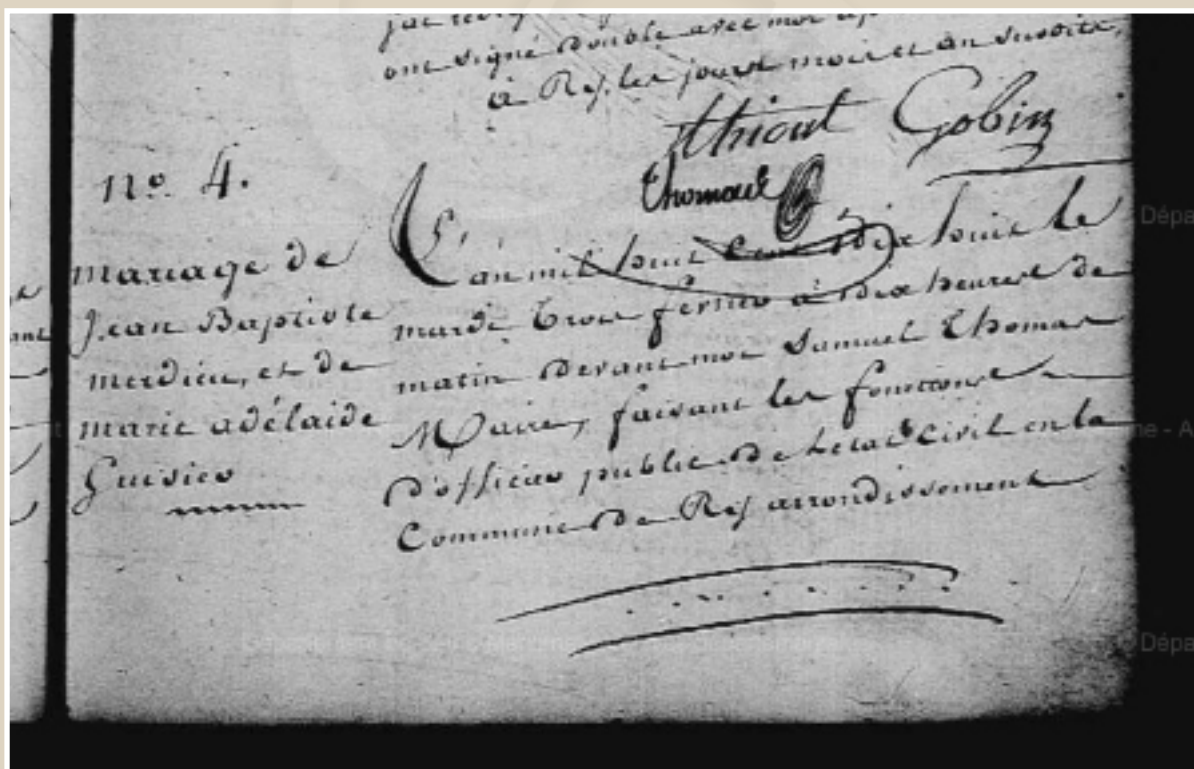 ont signé double avec moi
à Rej. les jours mois et an susdits,
thiout Gobin
Thomas
nº. 4.
mariage de
Jean Baptiste
merdieu, et de
marie adélaide
L'an mil huit cent dix huit le
mardi trois fevrier à dix heures de
matin devant moi Samuel Thomas
Maire, faisant les fonctions
D'officier public de Letat Civil en la
Commune de Rej arrondissement
Dépa
Dépa